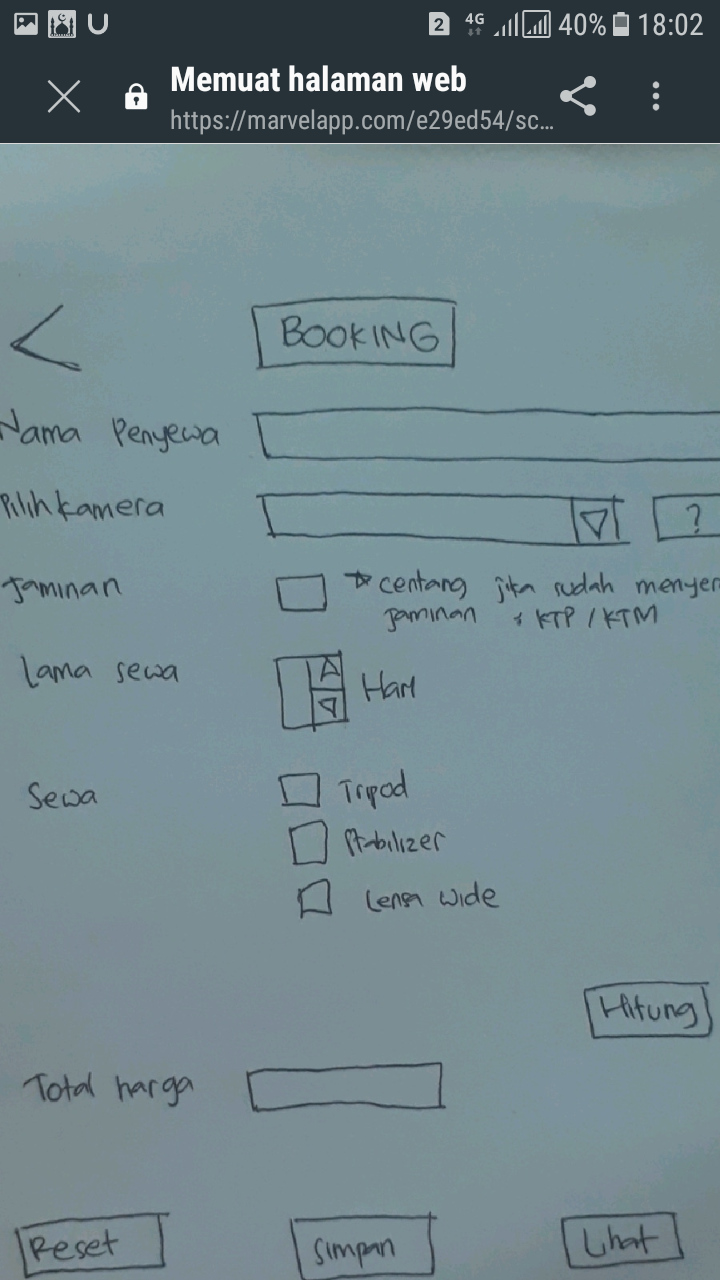 2 4G 40% 18:02
Memuat halaman web
https://marvelapp.com/e29ed54/sc...
BOOKING
Nama Penyewa
Pilih kamera ?
Jaminan centang jika sudah menyer
jaminan KTP / KTM
Lama sewa Hari
Sewa Tripod
Stabilizer
Lensa wide
Hitung
Total harga
Reset Simpan Lihat